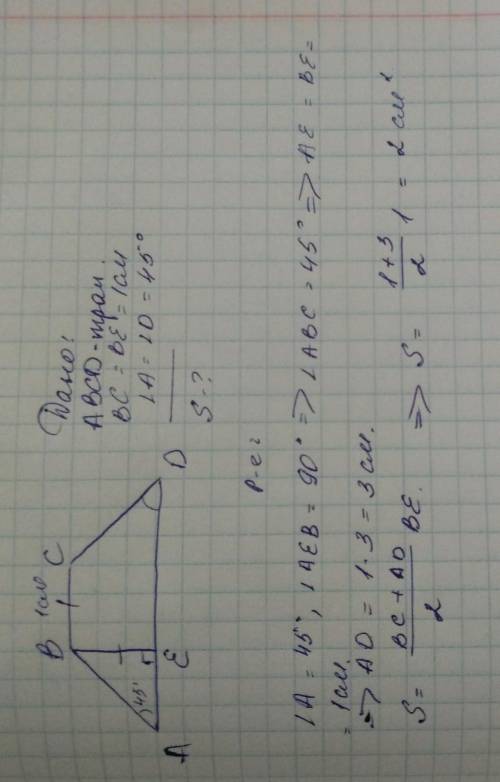 B 1см C
45°
A E D
Дано:
ABCD - трап.
BC = BE = 1см
∠A = ∠D = 45°
S - ?
Р-е:
∠A = 45°, ∠AEB = 90° => ∠ABC = 45° => AE = BE =
= 1см.
=> AD = 1 · 3 = 3 см.
S = \frac{BC + AD}{2} BE. => S = \frac{1+3}{2} 1 = 2 см²